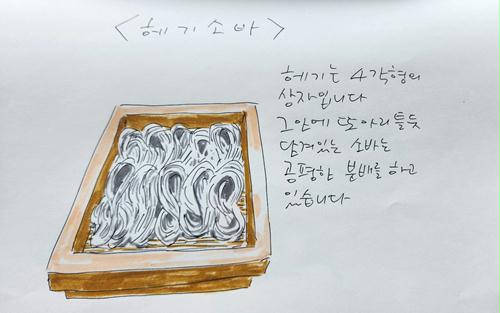 <헤기소바>
헤기는 4각형의
상자입니다
그안에 또아리틀듯
담겨있는 소바는
공평한 분배를 하고
있습니다